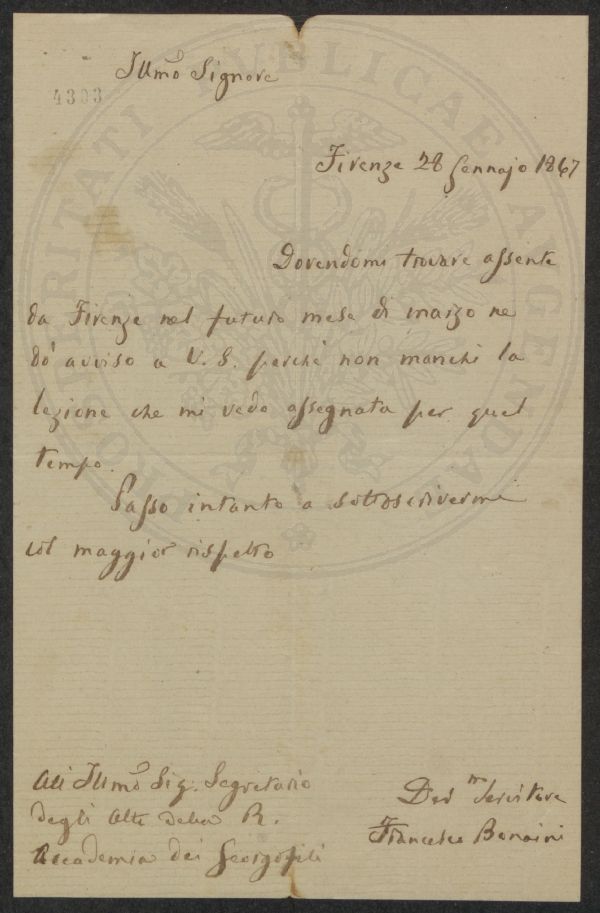 Illmo Signore
4303
Firenze 28 Gennajo 1867
Dovendomi trovare assente
da Firenze nel futuro mese di marzo ne
dò avviso a V. S. perchè non manchi la
lezione che mi vedo assegnata per quel
tempo.
Passo intanto a sottoscrivermi
col maggior rispetto
All Illmo Sig. Segretario
degli Atti della R.
Accademia dei Georgofili
Devmo Servitore
Francesco Bonaini
PROSPERITATI PUBLICAE AUGENDAE